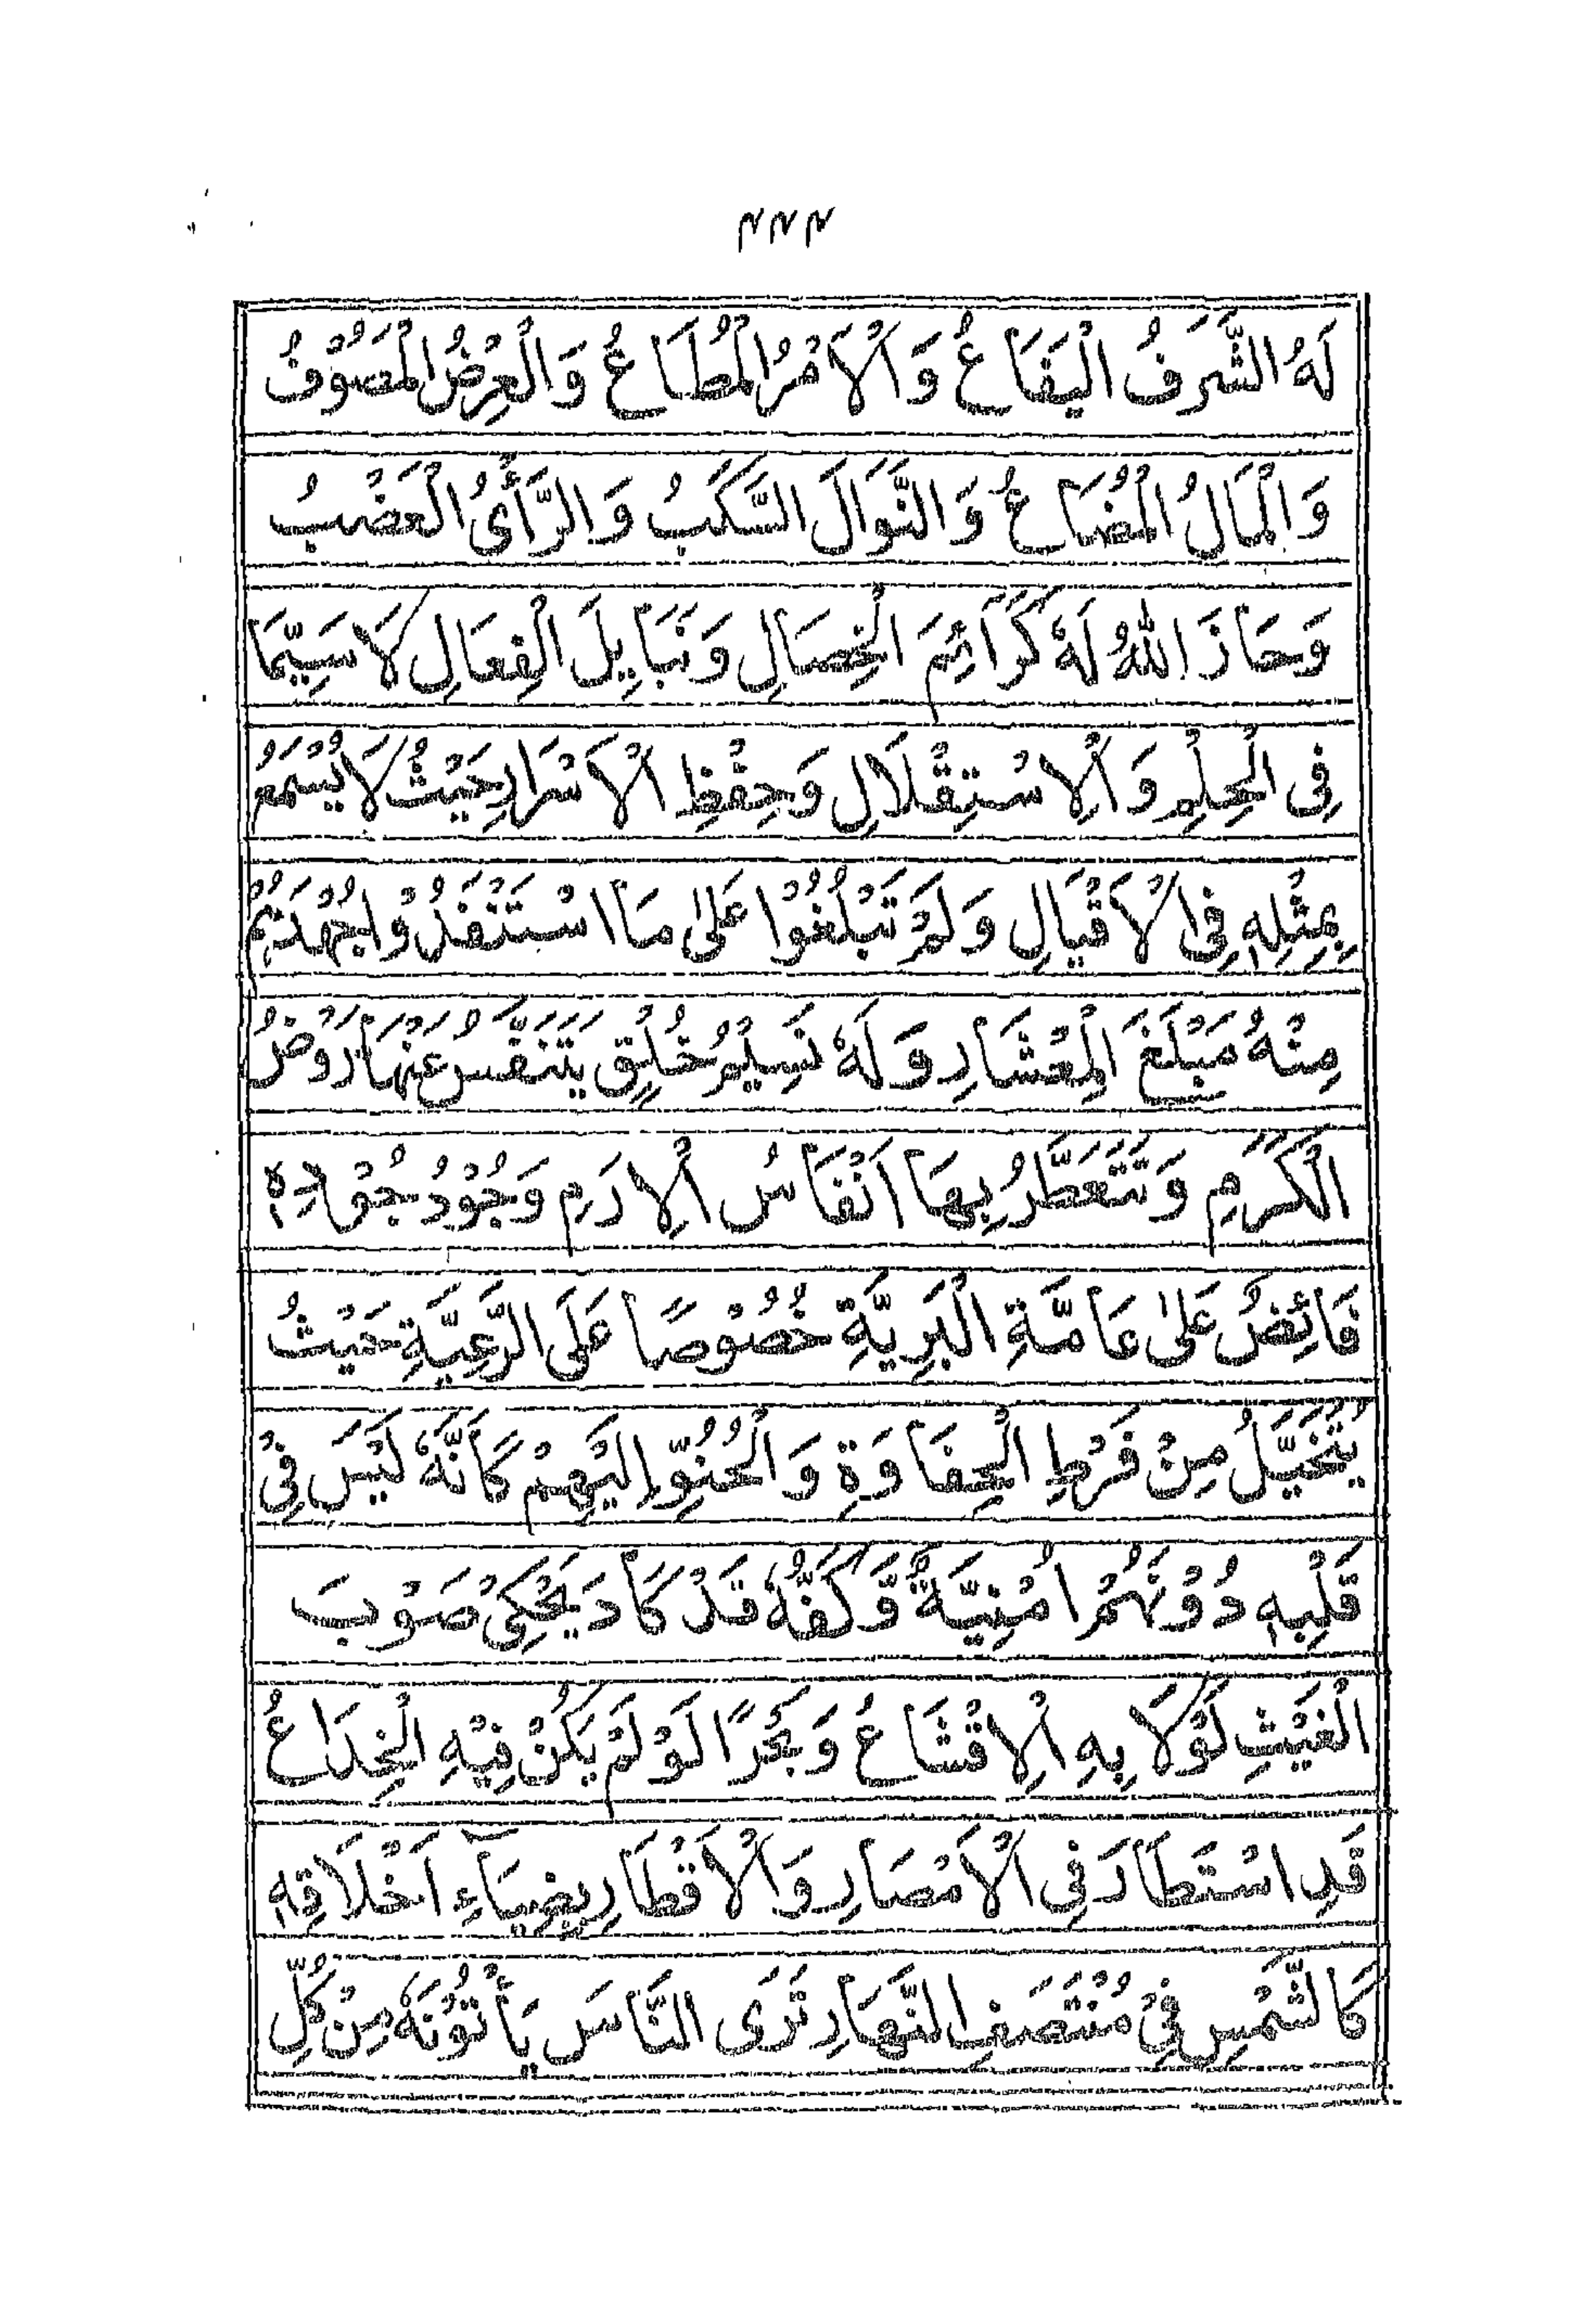 ٢٢٢
لَهُ الشَّرَفُ الْيَفَاعُ وَالْاَمْرُ الْمُطَاعُ وَالْعِرْضُ الْمَصُوْفُ
وَالْمَالُ الْمُضَاعُ وَالنَّوَالَ السَّكَبُ وَالرَّأْىُ الْعَضْبُ
وَحَازَ اللّٰهُ لَهٗ كَرَآئِمَ الْخِصَالِ وَنَبَايِلَ الْفِعَالِ لَا سَيِّمَا
فِى الْحِلْمِ وَالْاِسْتِقْلَالِ وَحِفْظِ الْاَسْرَارِ حَيْثُ لَا يُسْمَعُ
بِمِثْلِهٖ فِى الْاَقْيَالِ وَلَمْ تَبْلُغُوْا عَلىٰ مَا اسْتَنْفَدُوْا جُهْدَهُمْ
مِنْهُ مَبْلَغَ الْمِعْشَارِ وَلَهٗ نَسِيْمُ خُلُقٍ يَتَنَفَّسُ عَنْهَا رَوْضُ
الْكَرَمِ وَتَتَعَطَّرُ بِهَا اَنْفَاسُ الْاِرَمِ وَجُوْدُ جُوْدِهٖ
فَائِضُ عَلىٰ عَامَّةِ الْبَرِيَّةِ خُصُوْصًا عَلَى الرَّعِيَّةِ حَيْثُ
يُتَخَيَّلُ مِنْ فَرْطِ الْحِفَاوَةِ وَالْحُنُوِّ اِلَيْهِمْ كَاَنَّهٗ لَيْسَ فِىْ
قَلْبِهٖ دُوْنَهُمْ اُمْنِيَّةٌ وَّكَفُّهٗ قَدْ كَادَ يَحْكِىْ صَوْبَ
الْغَيْثِ لَوْلَا بِهِ الْاِقْشَاعُ وَبَحْرًا لَوْ لَمْ يَكُنْ فِيْهِ الْخِدَاعُ
قَدِ اسْتَطَارَ فِى الْاَمْصَارِ وَالْاَقْطَارِ بِضِيَآءِ اَخْلَاقِهٖ
كَالشَّمْسِ فِىْ مُنْتَصَفِ النَّهَارِ تَرَى النَّاسَ يَأْتُوْنَهٗ مِنْ كُلِّ